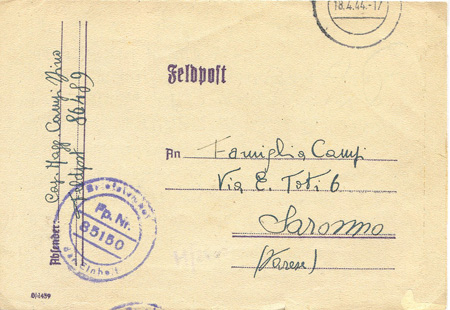 18.4.44.-17
Feldpost
An Famiglia Campi
Via E. Toti 6
Saronno
(Varese)
Absender: Cap. Magg. Campi Dino
Feldpost 86489
Briefstempel
Fp. Nr.
85150
der Einheit